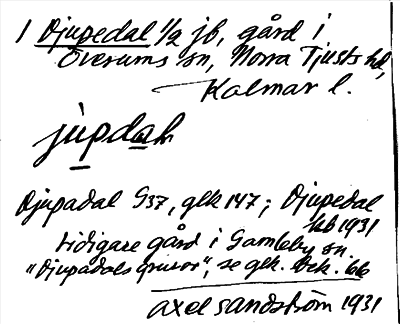 1 Djupedal 1/2 jb, gård i
Överums sn, Norra Tjusts hd,
Kalmar l.
jùpdah
Djupadal S37, glk 147; Djupedal
kb 1931
tidigare gård i Gamleby sn.
"Djupadals gruvor", se glk. bek. 66
Axel Sandström 1931